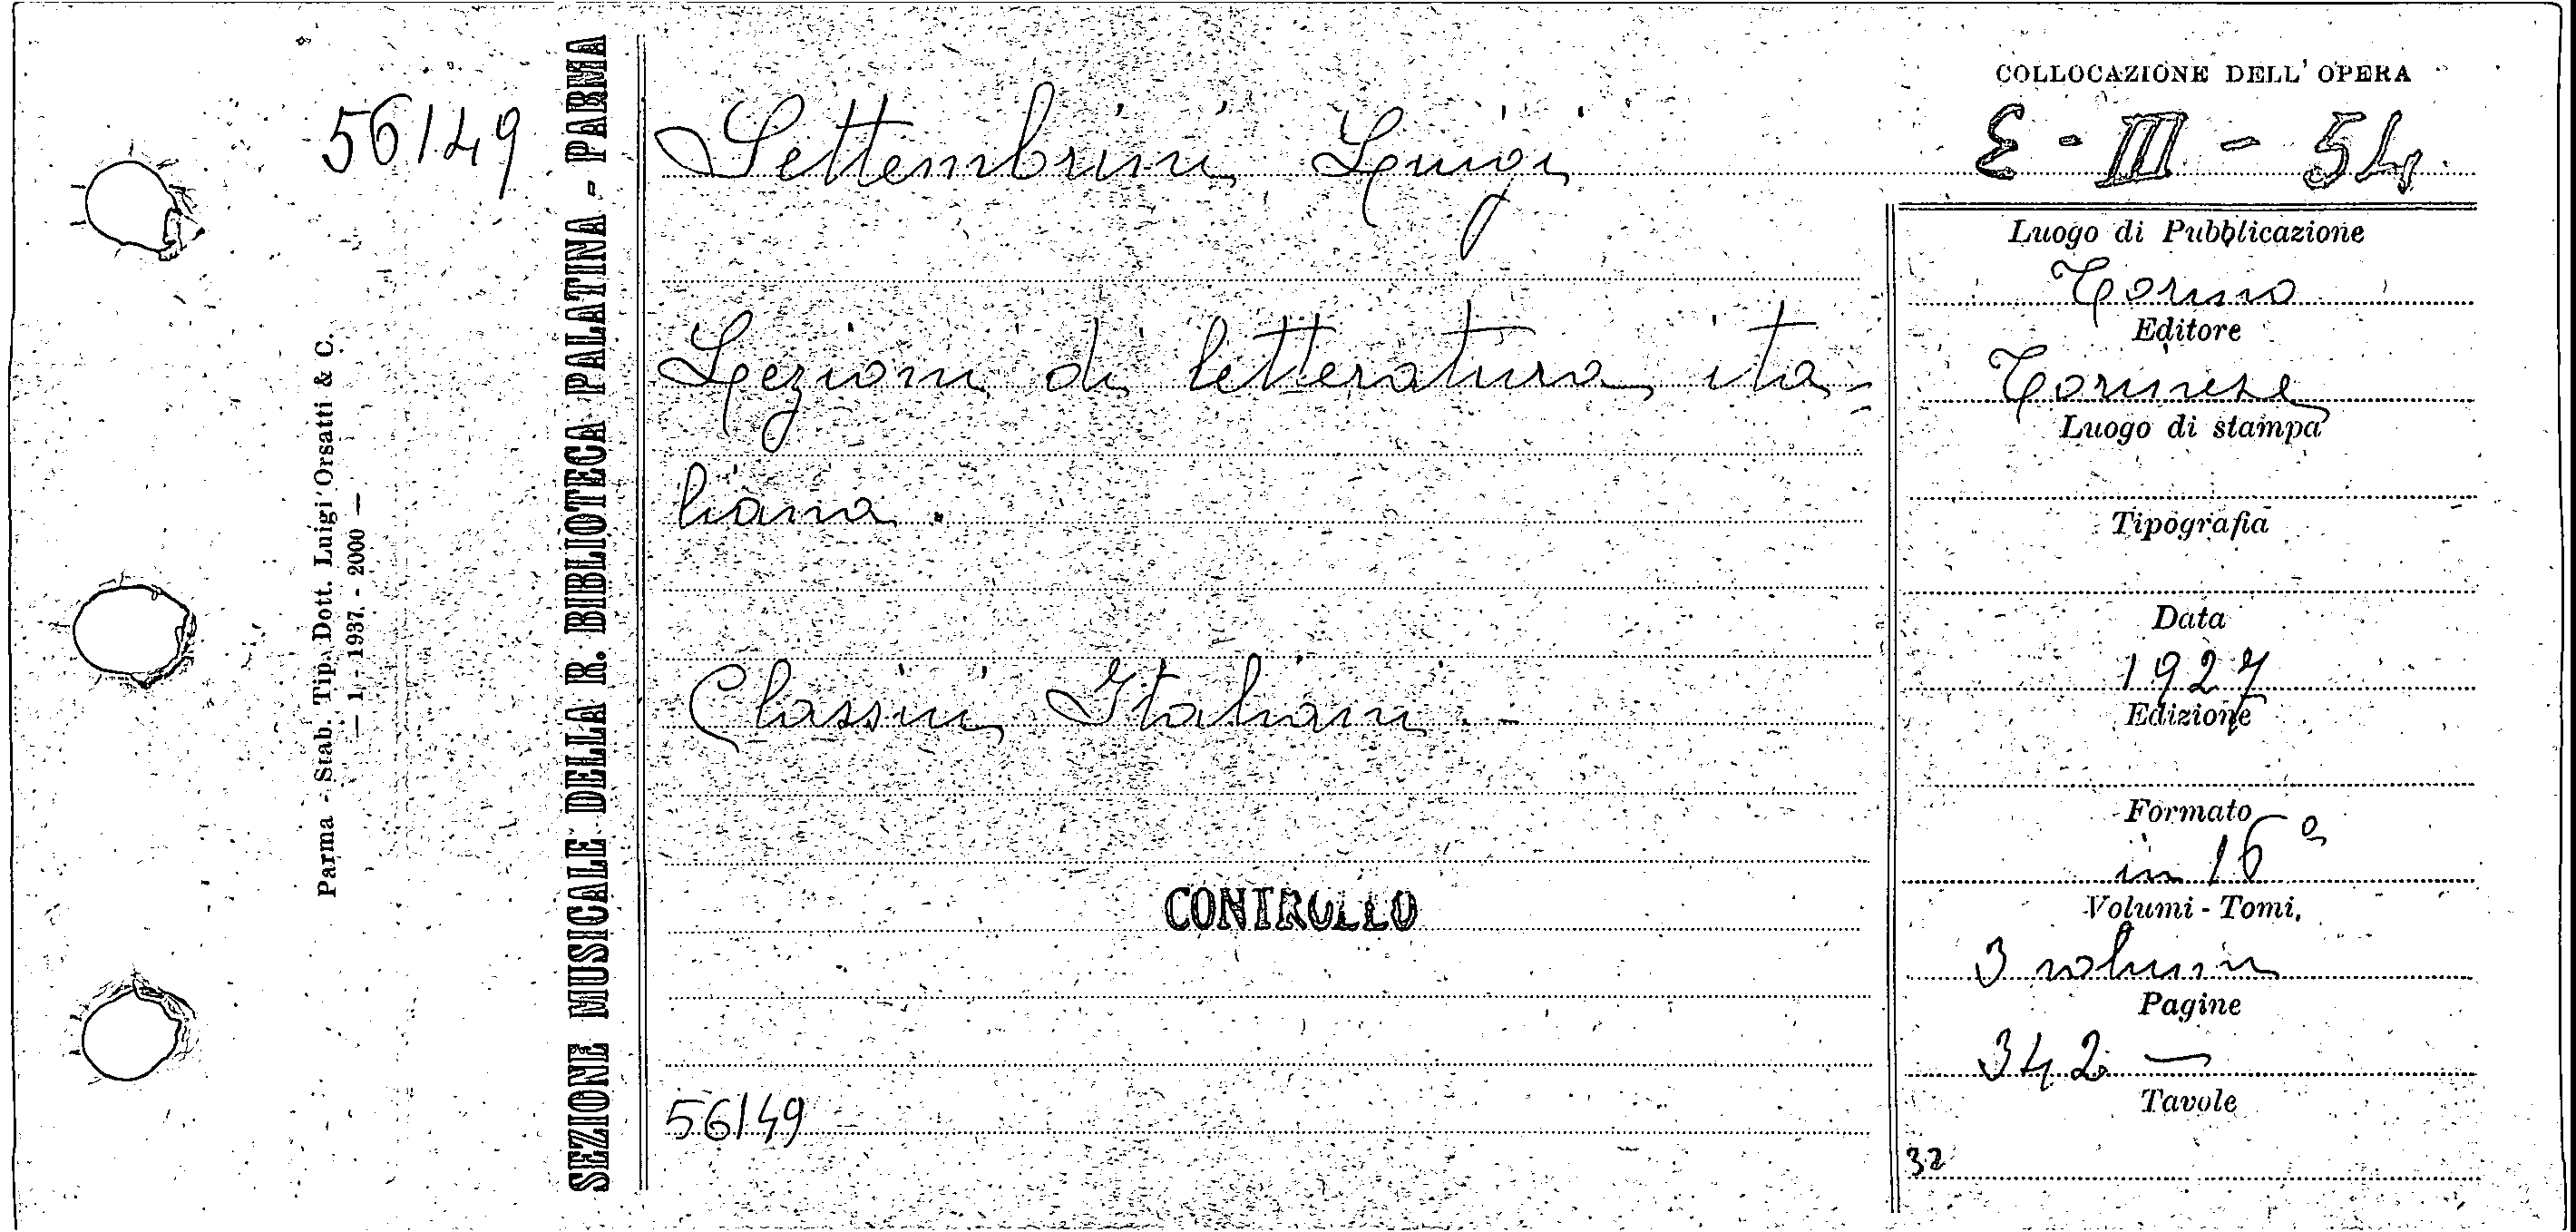 56149
Parma - Stab. Tip. Dott. Luigi Orsatti & C.
— 1 - 1937. - 2000 —
SEZIONE MUSICALE DELLA R. BIBLIOTECA PALATINA - PARMA
Settembrini Luigi
Lezioni di letteratura ita-
liana.
Classici Italiani. -
CONTROLLO
56149
COLLOCAZIONE DELL' OPERA
E - III - 54
Luogo di Pubblicazione
Torino
Editore
Torinese
Luogo di stampa
Tipografia
Data
1927
Edizione
Formato
in 16º
Volumi - Tomi
3 volumi
Pagine
342 —
Tavole
32